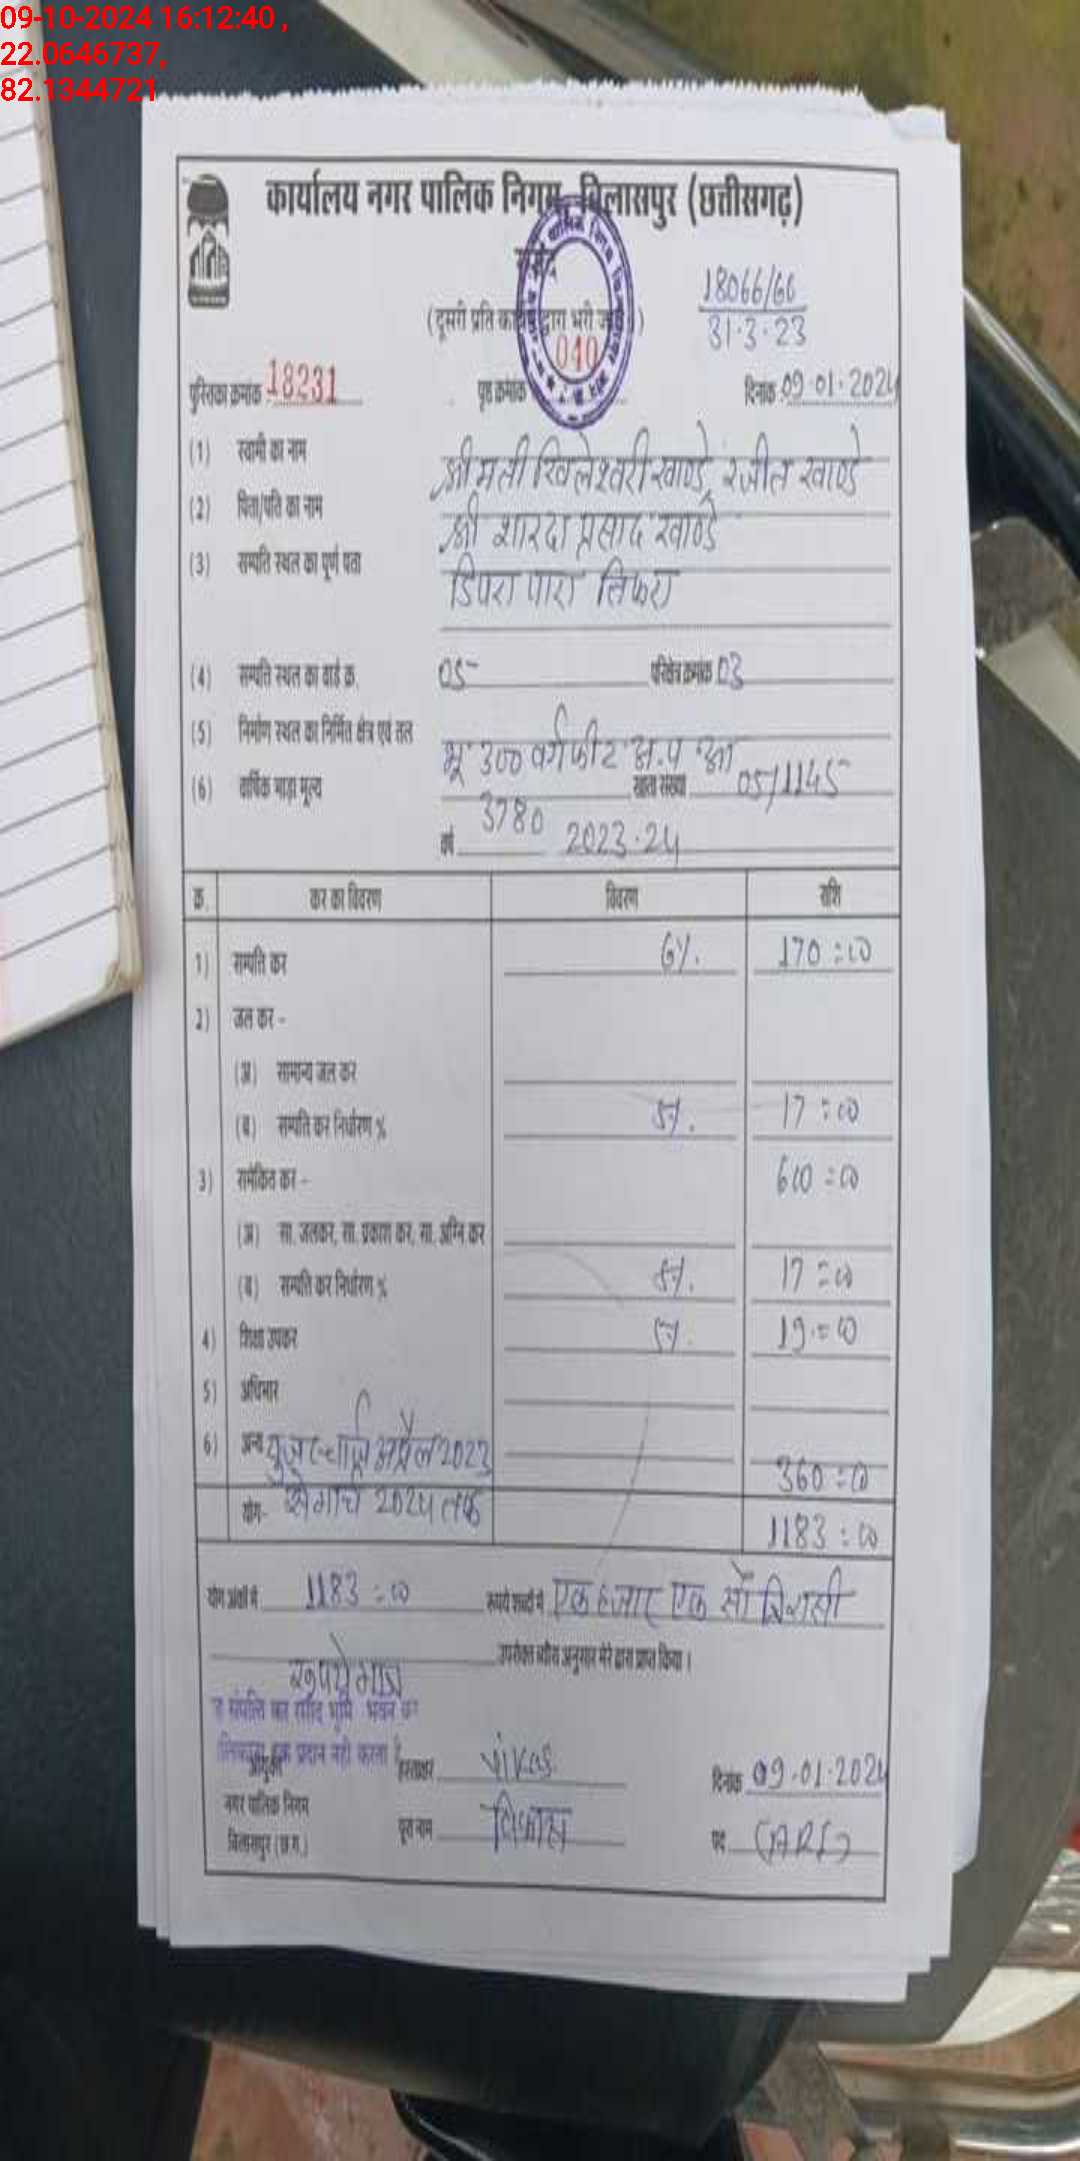 09-10-2024 16:12:40 ,
22.0646737,
82.1344721
कार्यालय नगर पालिक निगम, बिलासपुर (छत्तीसगढ़)
रसीद
18066/66
31.3.23
(दूसरी प्रति कार्बन द्वारा भरी जावे)
040
पुस्तिका क्रमांक 18231 पृष्ठ क्रमांक दिनांक 09.01.2024
(1) स्वामी का नाम श्रीमती खिलेश्वरी खाण्डे, रंजीत खाण्डे
(2) पिता/पति का नाम श्री शारदा प्रसाद खाण्डे
(3) सम्पति स्थल का पूर्ण पता डिपरा पारा तिफरा
(4) सम्पति स्थल का वार्ड क्र. 05 परिक्षेत्र क्रमांक 03
(5) निर्माण स्थल का निर्मित क्षेत्र एवं तल भू 300 वर्गफीट
(6) वार्षिक भाड़ा मूल्य 3780 खाता संख्या 05/1145
वर्ष 2023.24
क्र. कर का विवरण विवरण राशि
1) सम्पति कर 6%. 170=00
2) जल कर -
(अ) सामान्य जल कर
(ब) सम्पति कर निर्धारण % 5%. 17=00
3) समेकित कर - 600=00
(अ) सा. जलकर, सा. प्रकाश कर, सा. अग्नि कर
(ब) सम्पति कर निर्धारण % 5%. 17=00
4) शिक्षा उपकर 5%. 19=00
5) अधिभार
6) अन्य यूजर चार्ज अप्रैल 2023 360=00
योग- से मार्च 2024 तक 1183=00
योग अंकों में 1183=00 रूपये शब्दों में एक हजार एक सौ तिरासी
रूपये मात्र उपरोक्त ब्यौरा अनुसार मेरे द्वारा प्राप्त किया।
संपत्ति कर रसीद भूमि भवन का
हक प्रदान नहीं करता है
आयुक्त हस्ताक्षर Vikas दिनांक 09.01.2024
नगर पालिक निगम
बिलासपुर (छ.ग.) पूरा नाम विकास पद (ARI)